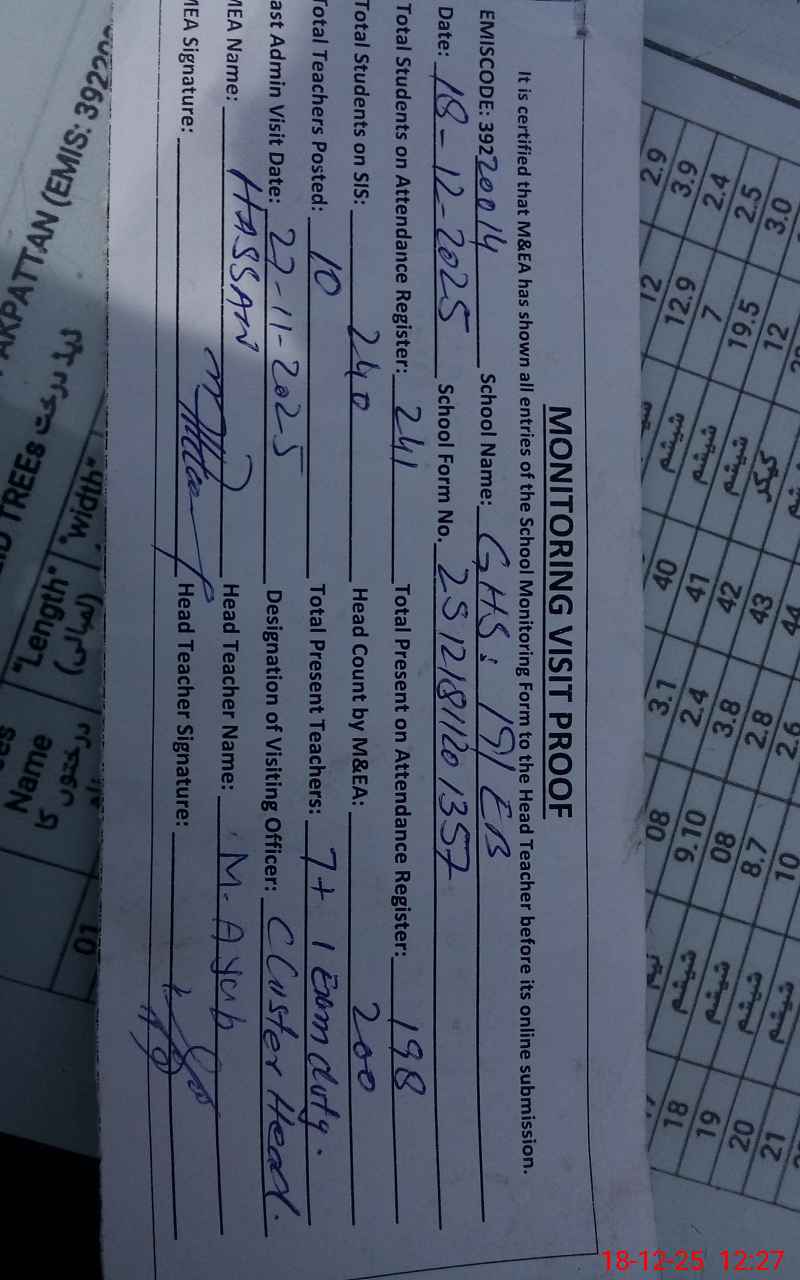 MONITORING VISIT PROOF
It is certified that M&EA has shown all entries of the School Monitoring Form to the Head Teacher before its online submission.
EMISCODE: 39220014 School Name: GHS: 191 EB
Date: 18-12-2025 School Form No. 2512181201357
Total Students on Attendance Register: 241 Total Present on Attendance Register: 198
Total Students on SIS: 240 Head Count by M&EA: 200
Total Teachers Posted: 10 Total Present Teachers: 7+ 1 Exam duty.
ast Admin Visit Date: 27-11-2025 Designation of Visiting Officer: Cluster Head.
MEA Name: HASSAN Head Teacher Name: M. Ayub
MEA Signature: Head Teacher Signature:
AKPATTAN (EMIS: 39220
TREEs
"Length" "width"
(لمبائی)
Name
01
3.0 12 کیکر 43 2.8 8.7 شیشم 20
2.5 19.5 شیشم 42 3.8 08 شیشم 19
2.4 7 شیشم 41 2.4 9.10 شیشم 18
3.9 12.9 شیشم 40 3.1 08
2.9 12
44 2.6 10 شیشم 21
18-12-25 12:27